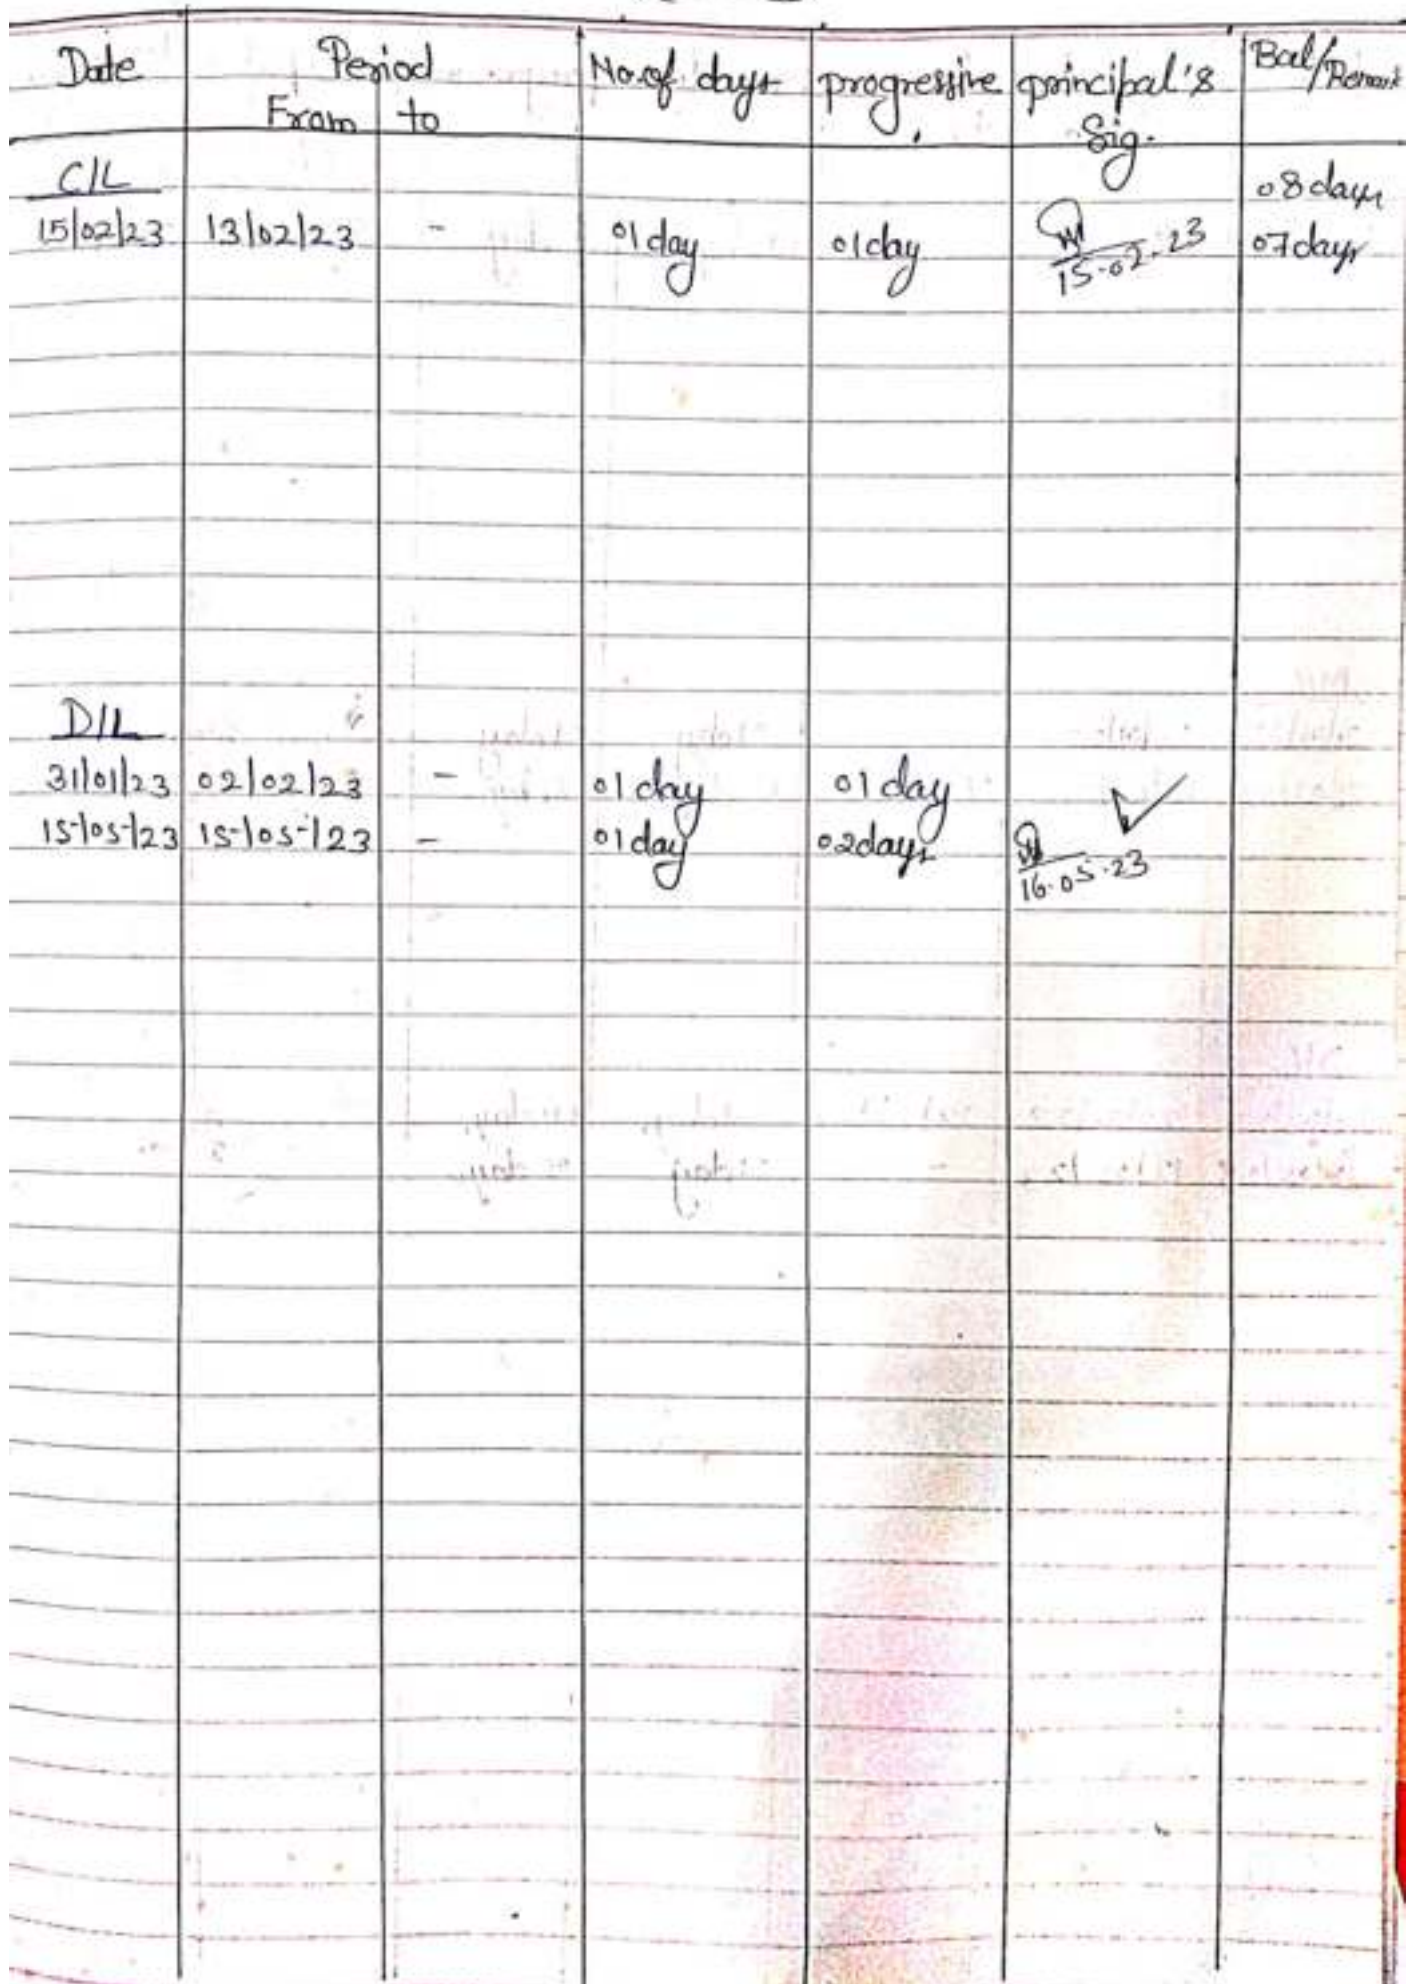 Date Period No. of days progressive principal's Bal/Remark
From to Sig.
C/L 08 days
15/02/23 13/02/23 - 01 day 01 day 15-02-23 07 days
D/L
31/01/23 02/02/23 - 01 day 01 day
15/05/23 15/05/23 - 01 day 02 days 16.05.23